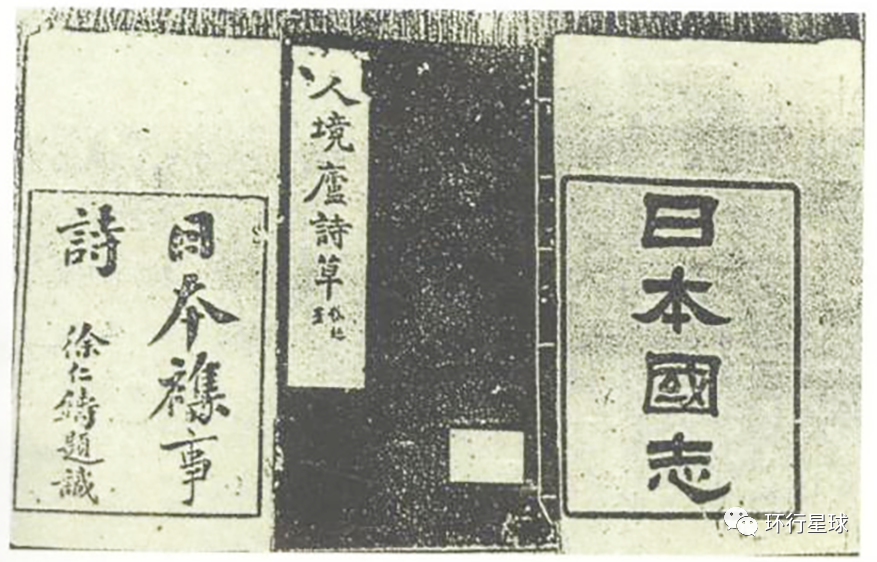 日本國志
人境廬詩草
日本襍事
詩 徐仁鑄題識
环行星球